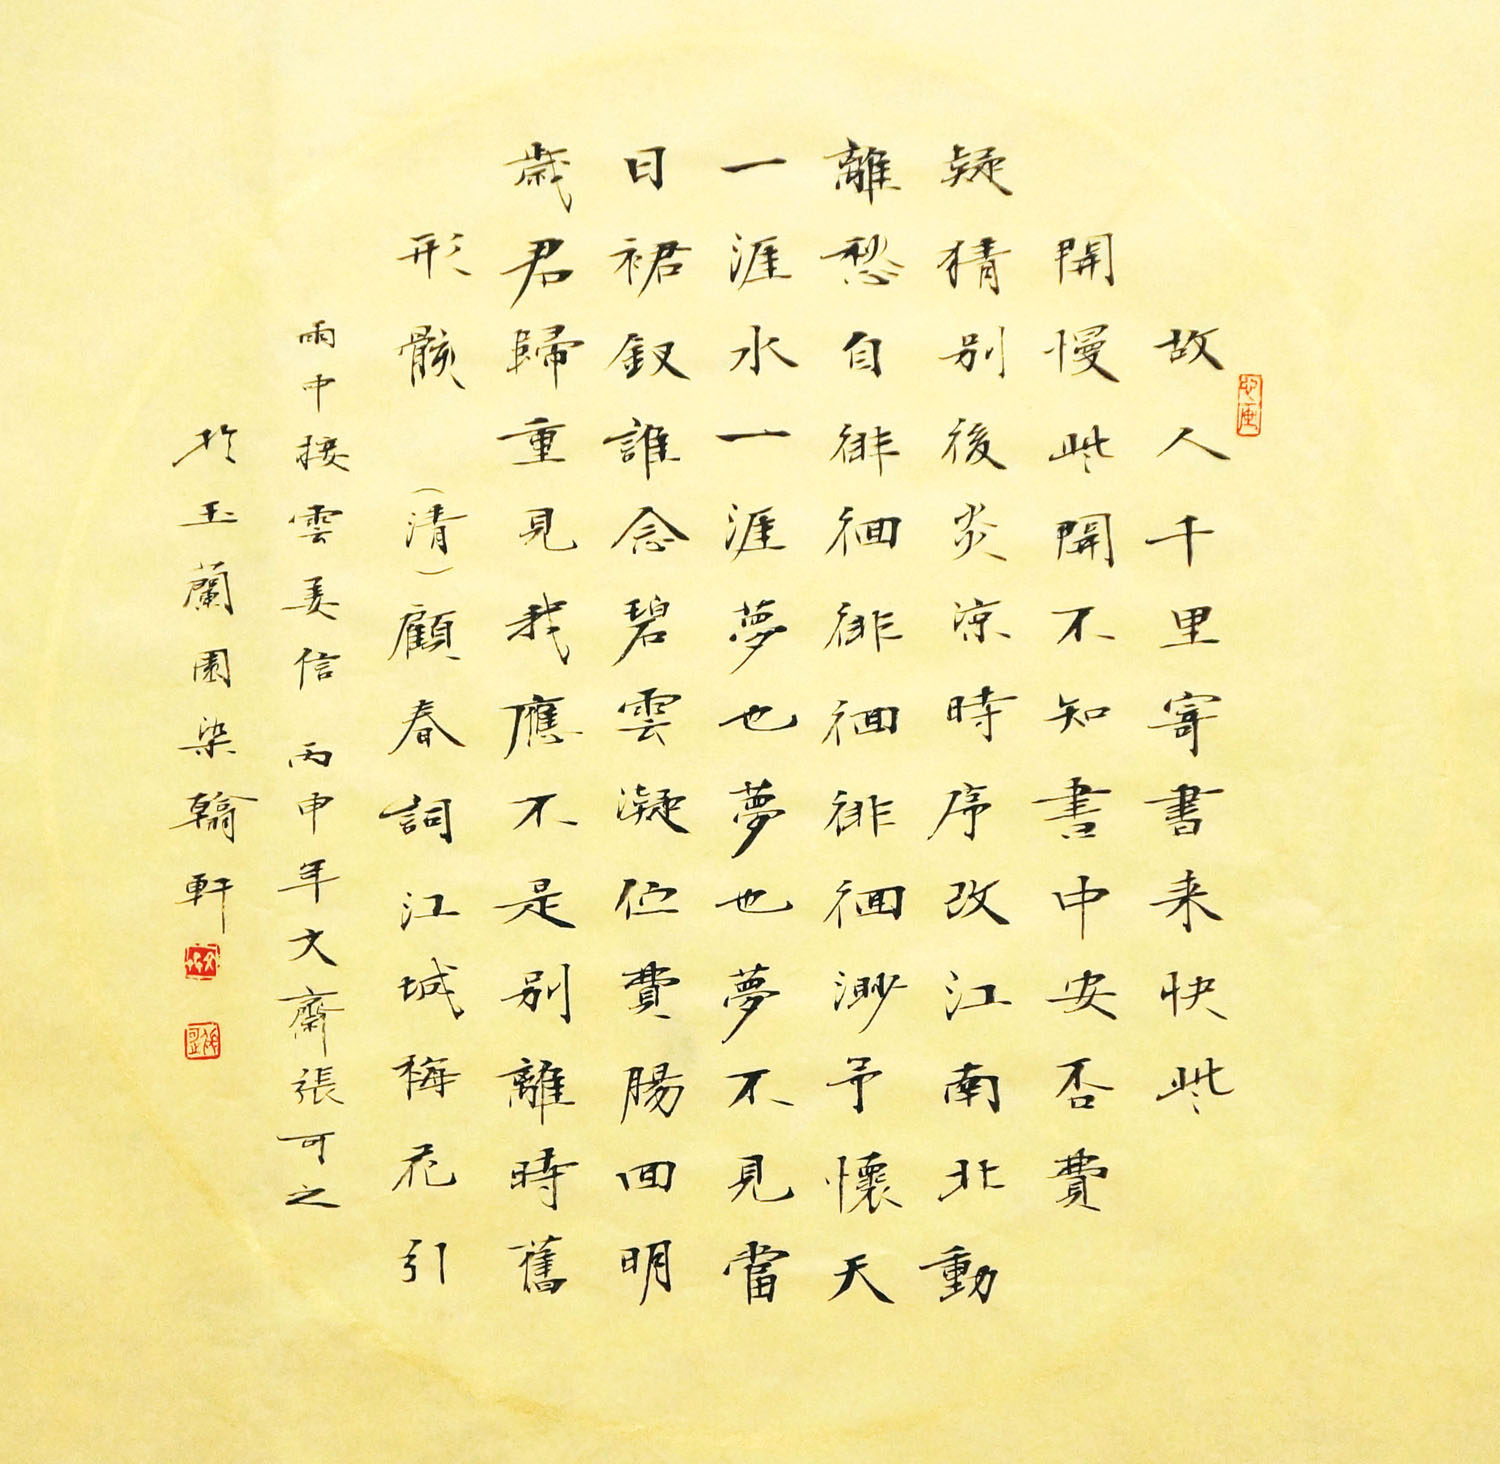 故人千里寄書来快些
開慢些開不知書中安否費
疑猜別後炎涼時序改江南北動
離愁自徘徊徘徊徘徊渺予懷天
一涯水一涯夢也夢也夢不見當
日裙釵誰念碧雲凝伫費腸回明
歲君歸重見我應不是別離時舊
形骸 (清)顧春詞江城梅花引
雨中接雲姜信 丙申年文齋張可之
於玉蘭園染翰軒